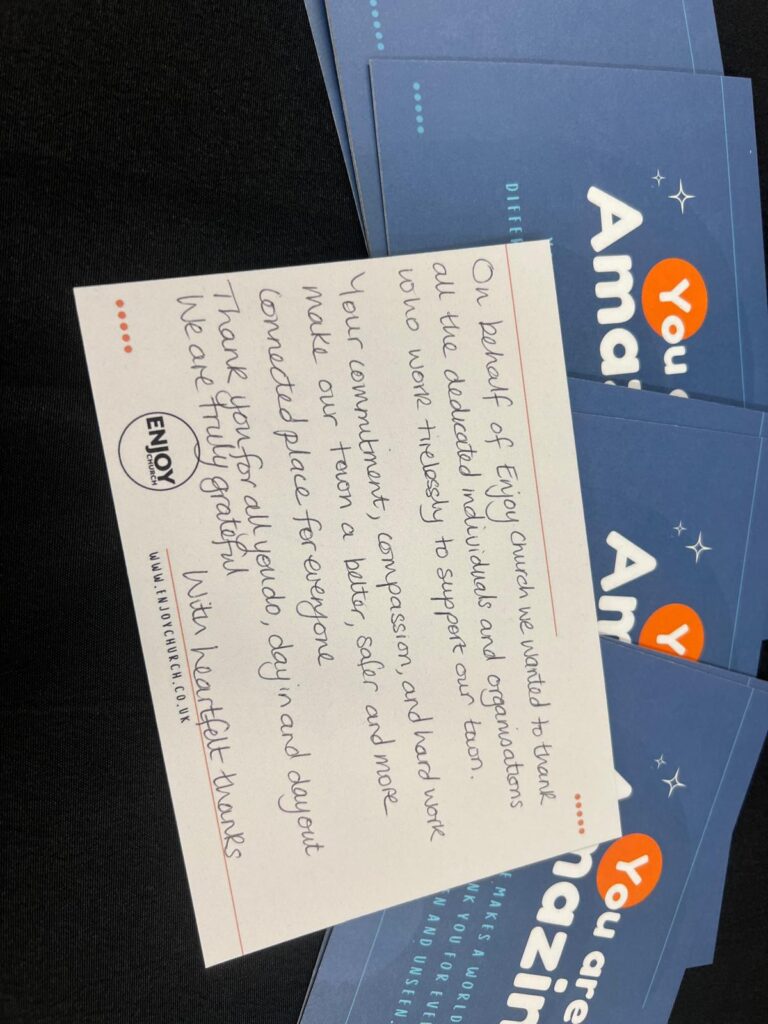 On behalf of Enjoy Church we wanted to thank
all the dedicated individuals and organisations
who work tirelessly to support our town.
Your commitment, compassion, and hard work
make our town a better, safer and more
connected place for everyone
Thank you for all you do, day in and day out
We are truly grateful
With heartfelt thanks
ENJOY
CHURCH
WWW.ENJOYCHURCH.CO.UK
You
Ama
Y
Am
You are
mazin
MAKES A WORLD
NK YOU FOR EVE
N AND UNSEEN.
DIFFE